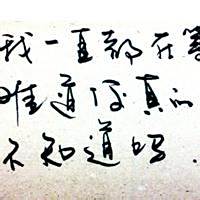 我一直都在等
难道你真的
不知道吗.